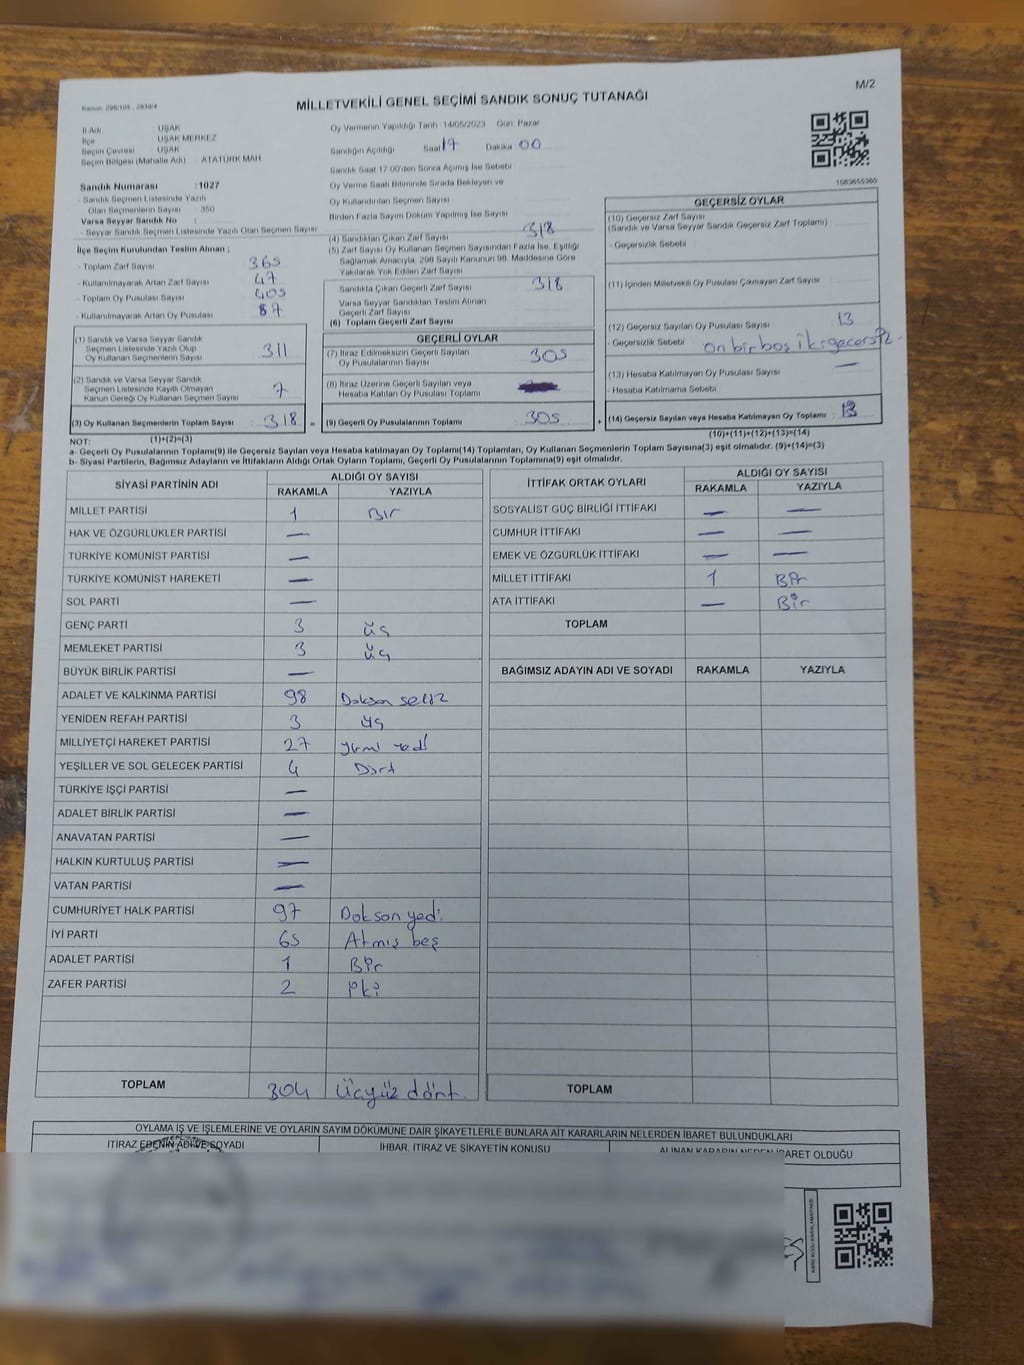 M/2
Kanun: 298/105 , 2839/4
MİLLETVEKİLİ GENEL SEÇİMİ SANDIK SONUÇ TUTANAĞI
İl Adı UŞAK
İlçe UŞAK MERKEZ
Seçim Çevresi UŞAK
Seçim Bölgesi (Mahalle Adı) ATATÜRK MAH.
Sandık Numarası :1027
- Sandık Seçmen Listesinde Yazılı
Olan Seçmenlerin Sayısı : 350
Varsa Seyyar Sandık No :
- Seyyar Sandık Seçmen Listesinde Yazılı Olan Seçmen Sayısı
Oy Vermenin Yapıldığı Tarih :14/05/2023 Gün: Pazar
Sandığın Açıldığı Saat 17 Dakika 00
Sandık Saat 17:00'den Sonra Açılmış İse Sebebi
Oy Verme Saati Bitiminde Sırada Bekleyen ve
Oy Kullandırılan Seçmen Sayısı
Birden Fazla Sayım Döküm Yapılmış İse Sayısı
1083655360
İlçe Seçim Kurulundan Teslim Alınan ;
- Toplam Zarf Sayısı 365
- Kullanılmayarak Artan Zarf Sayısı 47
- Toplam Oy Pusulası Sayısı 405
- Kullanılmayarak Artan Oy Pusulası 87
(1) Sandık ve Varsa Seyyar Sandık
Seçmen Listesinde Yazılı Olup
Oy Kullanan Seçmenlerin Sayısı 311
(2) Sandık ve Varsa Seyyar Sandık
Seçmen Listesinde Kayıtlı Olmayan
Kanun Gereği Oy Kullanan Seçmen Sayısı 7
(3) Oy Kullanan Seçmenlerin Toplam Sayısı 318 =
(1)+(2)=(3)
(4) Sandıktan Çıkan Zarf Sayısı 318
(5) Zarf Sayısı Oy Kullanan Seçmen Sayısından Fazla İse, Eşitliği
Sağlamak Amacıyla, 298 Sayılı Kanunun 98. Maddesine Göre
Yakılarak Yok Edilen Zarf Sayısı
Sandıkta Çıkan Geçerli Zarf Sayısı 318
Varsa Seyyar Sandıktan Teslim Alınan
Geçerli Zarf Sayısı
(6) Toplam Geçerli Zarf Sayısı
GEÇERLİ OYLAR
(7) İtiraz Edilmeksizin Geçerli Sayılan
Oy Pusulalarının Sayısı 305
(8) İtiraz Üzerine Geçerli Sayılan veya
Hesaba Katılan Oy Pusulası Toplamı
(9) Geçerli Oy Pusulalarının Toplamı 305 +
GEÇERSİZ OYLAR
(10) Geçersiz Zarf Sayısı
(Sandık ve Varsa Seyyar Sandık Geçersiz Zarf Toplamı)
- Geçersizlik Sebebi :
(11) İçinden Milletvekili Oy Pusulası Çıkmayan Zarf Sayısı
(12) Geçersiz Sayılan Oy Pusulası Sayısı 13
- Geçersizlik Sebebi : on bir boş iki geçersiz
(13) Hesaba Katılmayan Oy Pusulası Sayısı —
- Hesaba Katılmama Sebebi :
(14) Geçersiz Sayılan veya Hesaba Katılmayan Oy Toplamı 13
(10)+(11)+(12)+(13)=(14)
NOT:
a- Geçerli Oy Pusulalarının Toplamı(9) ile Geçersiz Sayılan veya Hesaba katılmayan Oy Toplamı(14) Toplamları, Oy Kullanan Seçmenlerin Toplam Sayısına(3) eşit olmalıdır. (9)+(14)=(3)
b- Siyasi Partilerin, Bağımsız Adayların ve İttifakların Aldığı Ortak Oyların Toplamı, Geçerli Oy Pusulalarının Toplamına(9) eşit olmalıdır.
SİYASİ PARTİNİN ADI ALDIĞI OY SAYISI
RAKAMLA YAZIYLA
MİLLET PARTİSİ 1 Bir
HAK VE ÖZGÜRLÜKLER PARTİSİ —
TÜRKİYE KOMÜNİST PARTİSİ —
TÜRKİYE KOMÜNİST HAREKETİ —
SOL PARTİ —
GENÇ PARTİ 3 üç
MEMLEKET PARTİSİ 3 üç
BÜYÜK BİRLİK PARTİSİ —
ADALET VE KALKINMA PARTİSİ 98 Doksan sekiz
YENİDEN REFAH PARTİSİ 3 üç
MİLLİYETÇİ HAREKET PARTİSİ 27 yirmi yedi
YEŞİLLER VE SOL GELECEK PARTİSİ 4 Dört
TÜRKİYE İŞÇİ PARTİSİ —
ADALET BİRLİK PARTİSİ —
ANAVATAN PARTİSİ —
HALKIN KURTULUŞ PARTİSİ —
VATAN PARTİSİ —
CUMHURİYET HALK PARTİSİ 97 Doksan yedi
İYİ PARTİ 65 Atmış beş
ADALET PARTİSİ 1 Bir
ZAFER PARTİSİ 2 İki
TOPLAM 304 Üçyüz dört
İTTİFAK ORTAK OYLARI ALDIĞI OY SAYISI
RAKAMLA YAZIYLA
SOSYALİST GÜÇ BİRLİĞİ İTTİFAKI — —
CUMHUR İTTİFAKI — —
EMEK VE ÖZGÜRLÜK İTTİFAKI — —
MİLLET İTTİFAKI 1 Bir
ATA İTTİFAKI — Bir
TOPLAM
BAĞIMSIZ ADAYIN ADI VE SOYADI RAKAMLA YAZIYLA
TOPLAM
OYLAMA İŞ VE İŞLEMLERİNE VE OYLARIN SAYIM DÖKÜMÜNE DAİR ŞİKAYETLERLE BUNLARA AİT KARARLARIN NELERDEN İBARET BULUNDUKLARI
İTİRAZ EDENİN ADI VE SOYADI İHBAR, İTİRAZ VE ŞİKAYETİN KONUSU ALINAN KARARIN NEDEN İBARET OLDUĞU